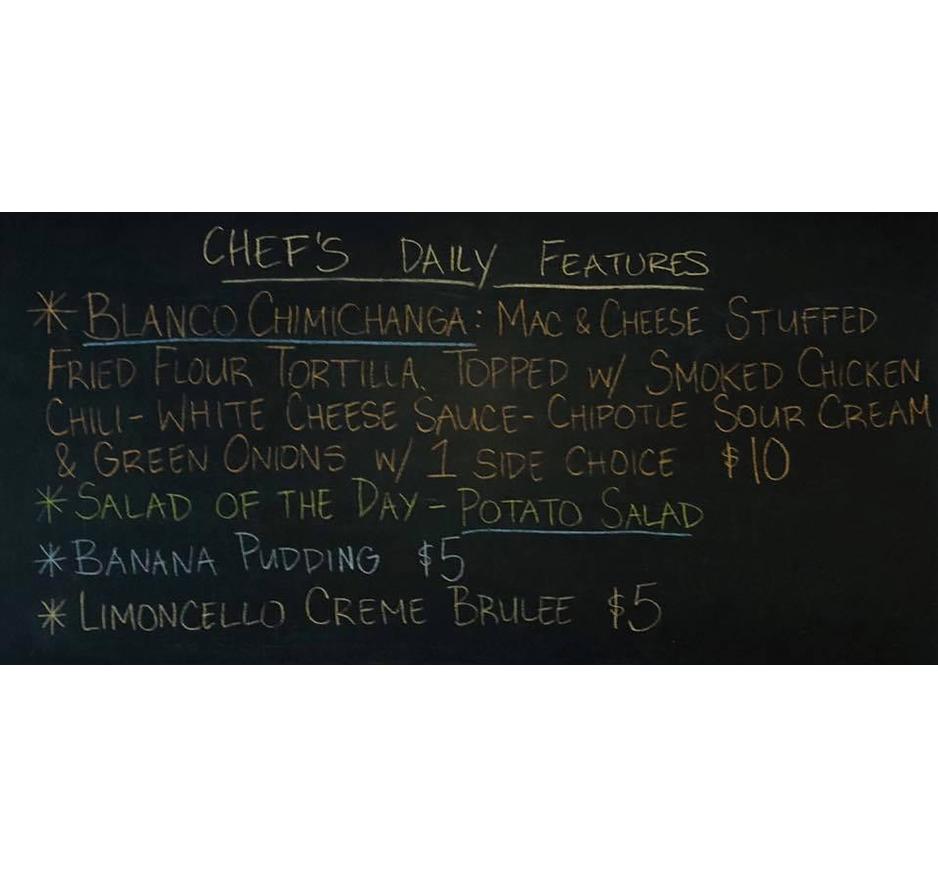 CHEF'S DAILY FEATURES
* BLANCO CHIMICHANGA: MAC & CHEESE STUFFED
FRIED FLOUR TORTILLA. TOPPED W/ SMOKED CHICKEN
CHILI- WHITE CHEESE SAUCE- CHIPOTLE SOUR CREAM
& GREEN ONIONS W/ 1 SIDE CHOICE $10
* SALAD OF THE DAY - POTATO SALAD
* BANANA PUDDING $5
* LIMONCELLO CREME BRULEE $5